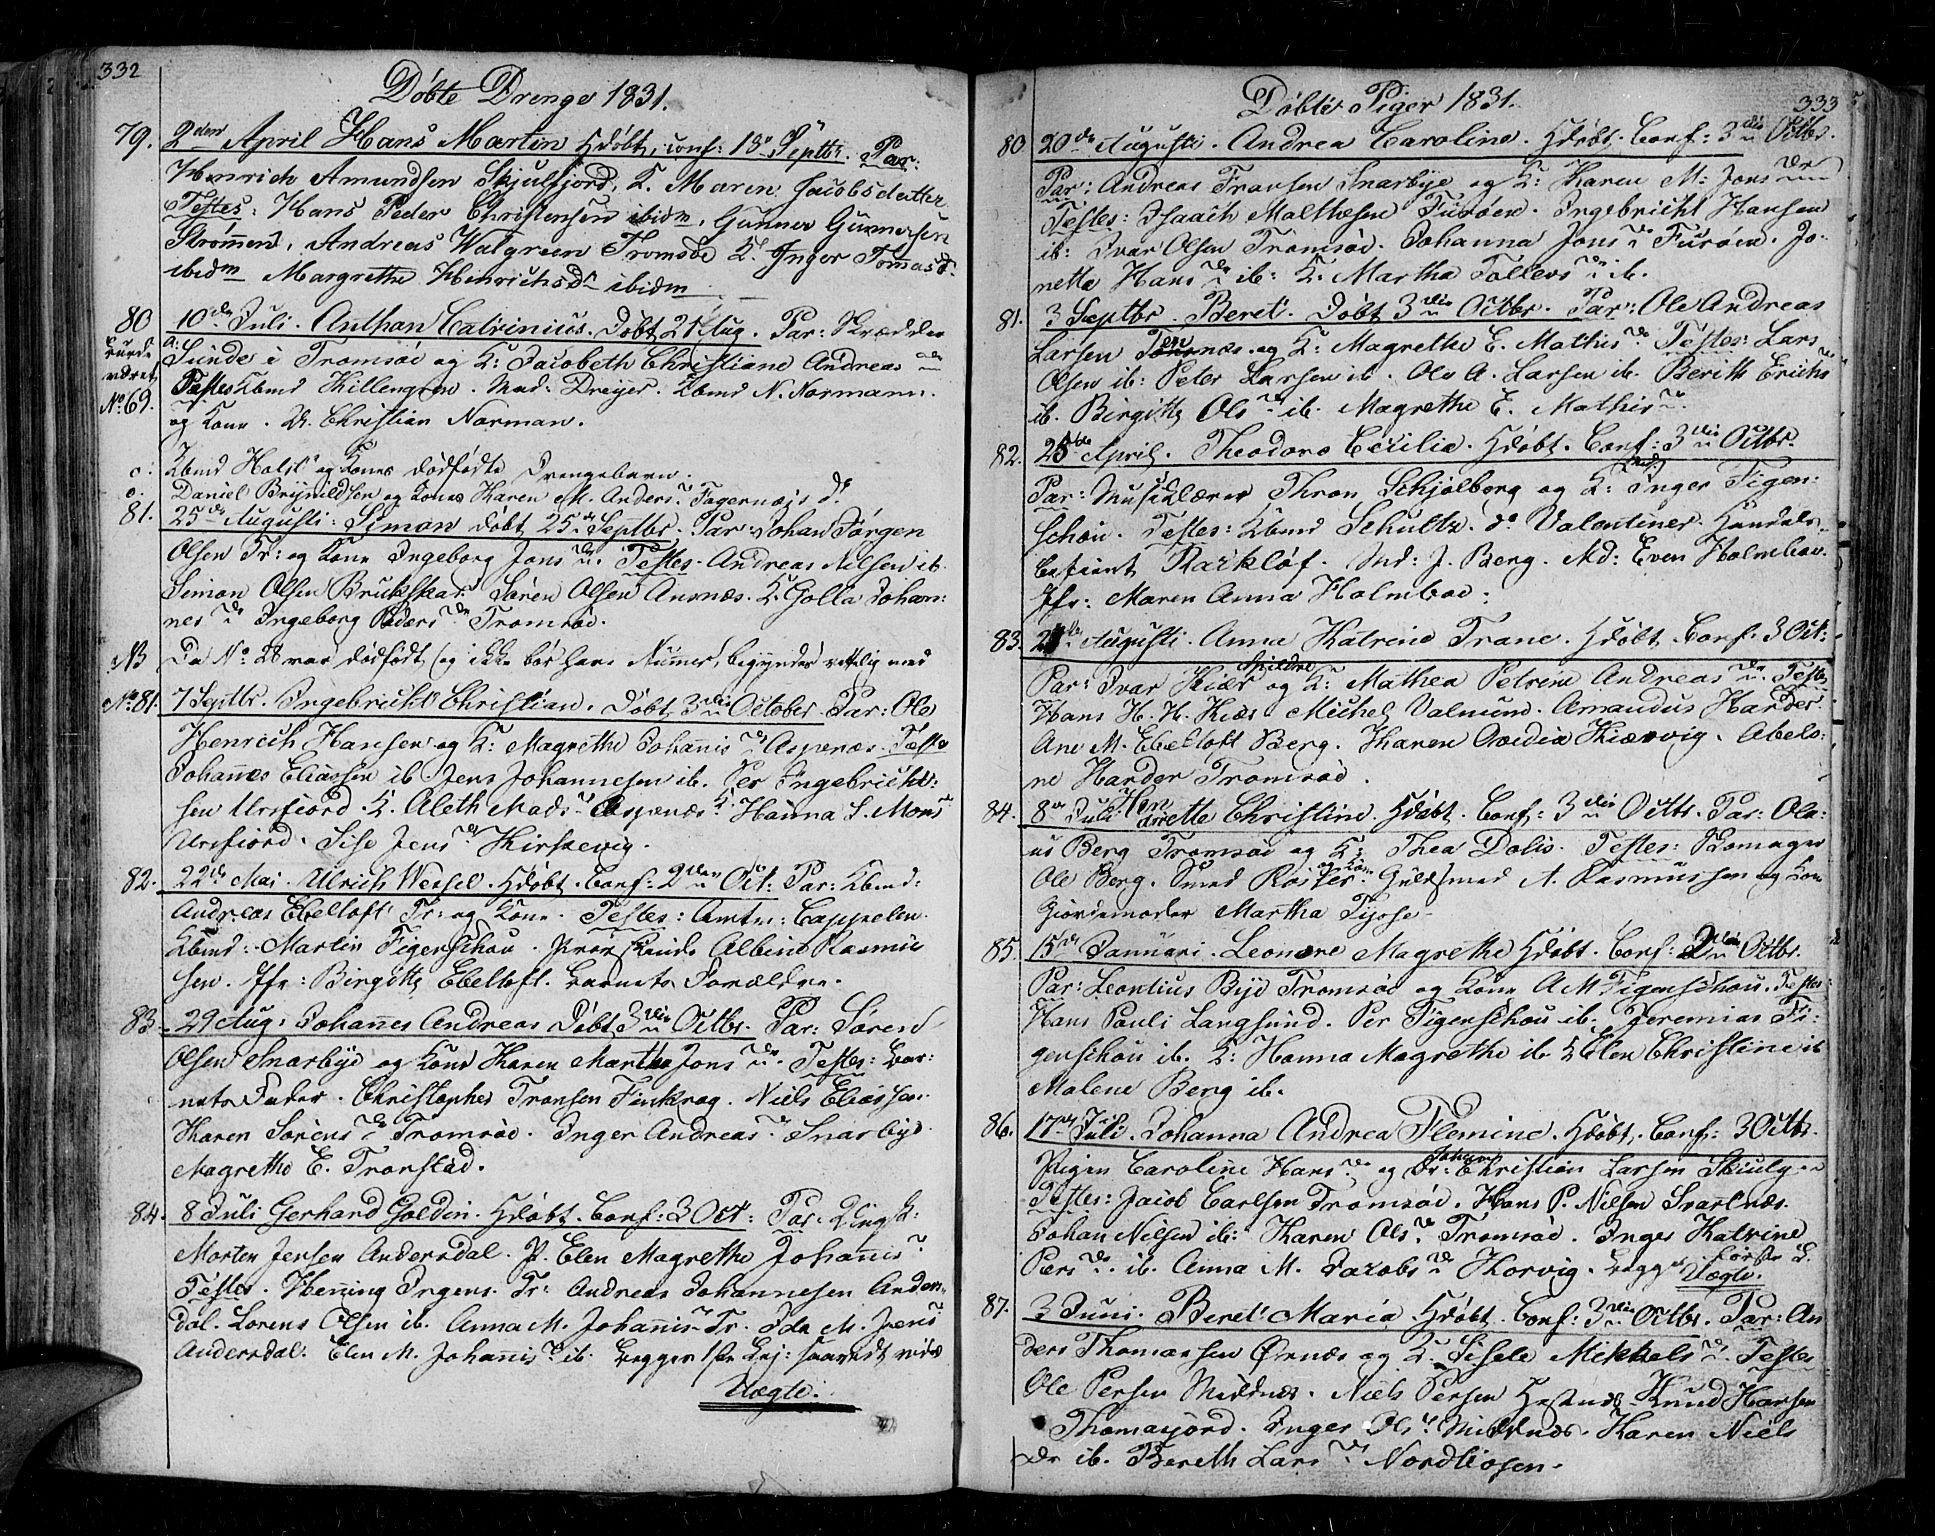 332
Døbte Drenge 1831.
79. 2den April Hans Martin Hdøbt, conf: 18de Septbr. Par:
Henrich Amundsen Skjulfjord, K. Maren Jacobsdatter
Testes: Hans Peder Christensen ibidm, Gunner Gunnersen
Strømmen, Andreas Walgreen Tromsøe K. Inger Tomasd.
ibidm Margrethe Henrichsdr ibidm
80 10de Juli. Anthan Catrinius. Døbt 21 Aug. Par: Skrædder
Burde været No 69.
Sunde i Tromsøe og K: Jacobeth Christiane Andreasdr
Testes Kbmd Killengren. Mad: Dreyer. Kbmd N. Normann.
og Kone. Christian Norman.
o. Kbmd Holst og Kones dødfødte Drengebarn.
o. Daniel Brynildsen og Kones Karen M. Andersdr Fagernæs do
81. 25de Augusti: Simon døbt 25de Septbr. Par: Johan Jørgen
Olsen Tr: og Kone Ingeborg Jonsdr. Testes. Andreas Nilsen ib.
Simon Olsen Brukskar. Søren Olsen Ansnæs. K. Golla Johan-
nesdr Ingeborg Pedersdr Tromsøe.
NB Da No 28 var dødfødt (og ikke bør have Numer, begyndes rettelig med
No: 81. 7 Septbr. Ingebricht Christian. Døbt 3die October. Par: Ole
Henrich Hansen og K: Magrethe Johannisdr Aspenæs. Teste
Johannes Eliassen ib. Jens Johannesen ib. Per Ingebricht-
sen Ursfiord. K. Aleth Madsdr Aspenæs K. Hanna S. Monsdr
Ursfiord. Sise Jensdr Kirskevig.
82. 22de Mai. Ulrich Wensel. Hdøbt. Conf: 2den Oct: Par: Kbmd:
Andreas Ebeltoft Tr: og Kone. Testes: Amtm: Cappelen.
Kbmd: Martin Figenschou. Albine Rasmus
sen. Jfr: Birgitte Ebeltoft. Barnets Forældre.
83. 29 Aug: Johannes Andreas Døbt 3die Octbr. Par: Søren
Olsen Snarbye og Kone Karen Martha Jonsdr. Testes: Bar-
nets Fader. Christopher Transen Finkrog. Niels Eliassen.
Karen Sørensdr Tromsøe. Inger Andreasdr Snarbye.
Magrethe E. Tronstad.
84. 8 Juli Gerhard Goldin. Hdøbt. Conf: 3 Oct: Par: Ungk:
Morten Jensen Andersdal. P. Elen Magrethe Johannisdr
Testes. Henning Irgens. Tr: Andreas Johannesen Anders-
dal. Lorens Olsen ib. Anna M. Johannisdr Tr. Ida M. Jensdr
Andersdal. Elen M. Johannisdr ib. Begges 1ste Lej: saavidt vides
Uægte.
333
Døbte Piger 1831.
80 20de Augusti. Andrea Caroline. Hdøbt. Conf: 3die Octbr.
Par: Andreas Fransen Snarbye og K: Karen M: Jonsdr
Testes: Isaach Mathæsen Furøen. Ingebricht Hansen
ib: Ivar Olsen Tromsøe. Johanna Jonsdr Furøen. Jo-
netta Hansdr ib: K: Martha Tollevsdr ib.
81. 3 Septbr. Beret. Døbt 3die Octbr. Par: Ole Andreas
Larsen Tennæs. og K: Magrethe E. Mathisdr. Testes: Lars
Olsen ib: Peter Larsen ib. Ole A. Larsen ib. Berith Erichsdr
ib. Birgitte Olsdr ib. Magrethe E. Mathisdr.
82. 25de April. Theodora Cecilia. Hdøbt. Conf: 3die Octbr.
Par: Musiklærer Thron Schjølberg og K: Inger Figen-
schou. Testes: Kbmd Schultz. do Valentiner. Handels-
betient Rackløf. Md: J. Berg. Md: Even Holmboe.
Jfr: Maren Anna Holmboe:
83. Augusti. Anna Katrine Trane. Hdøbt. Conf: 3 Oct:
Par: Ivar Kiær og K: Mathea Petrine Andreasdr. Testes
Hans H. H. Kiær. Michel Valmund. Amandus Harder
Ane M. Ebeltoft Berg. Karen Ovidia Kiærvig. Abelo-
ne Harder Tromsøe.
84. 8de Juli Henanette Christine. Hdøbt. Conf: 3die Octbr. Par: Ola-
us Berg Tromsøe og K: Thea Dolis. Testes: Skomager
Ole Berg. Smed Røster og Kone Guldsmed A. Rasmussen og Kone
Giordemoder Martha
85. 15de Januari. Leonore Magrethe Hdøbt. Conf: 2den Octbr.
Par: Leontius Bye Tromsøe og Kone A M Figenschou. Testes
Hans Pauli Langsund. Per Figenschou ib. Jeremias Fi-
genschou ib. K: Hanna Magrethe ib. Elen Christine ib
Malene Berg ib.
86. 17de Juli. Johanna Andrea Flemine. Hdøbt. Conf: 3 Octbr.
Pigen Caroline Hansdr og Johan Christian Larsen
Testes: Jacob Carlsen Tromsøe. Hans P. Nilsen Svartnæs.
Johan Nilsen ib: Karen Olsdr Tromsøe. Inger Katrine
Persdr ib. Anna M. Jacobsdr Korvig. Begges første L.
Uægte.
87. 3 Juni. Beret Maria Hdøbt. Conf: 3die Octbr. Par: An
ders Thomassen Ørnæs og K. Sisele Mikkelsdr. Testes
Ole Persen Mælnæs. Niels Persen Hestnes. Knud Hansen
Thomasjord. Inger Olsdr Mælnæs. Karen Niels
dr ib. Bereth Larsdr Nordkiosen.